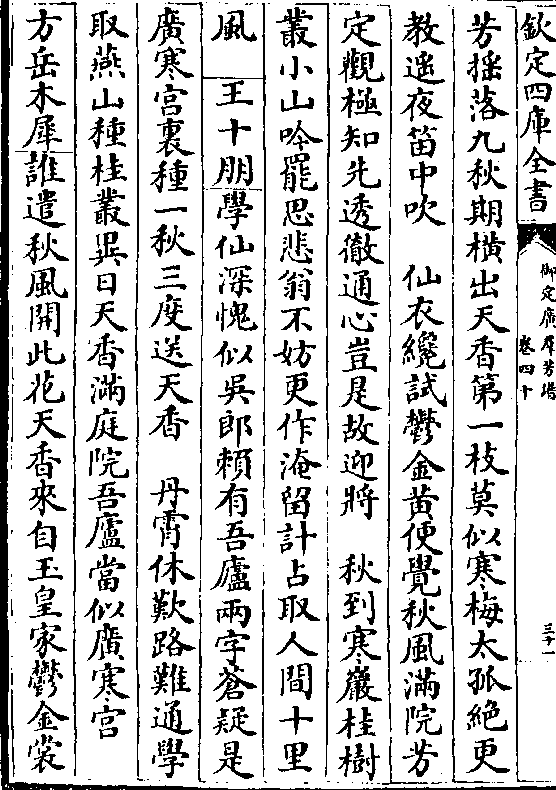 欽定四庫全書
御定廣羣芳譜
卷四十
三十一
芳揺落九秋期橫出天香第一枝莫似寒梅太孤絶更
教遥夜笛中吹　仙衣纔試鬱金黄便覺秋風滿院芳
定觀極知先透徹通心豈是故迎將　秋到寒巖桂樹
叢小山吟罷思悲翁不妨更作淹留計占取人間十里
風　王十朋學仙深愧似吳郎賴有吾廬兩字蒼疑是
廣寒宫裏種一秋三度送天香　丹霄休歎路難通學
取燕山種桂叢異日天香滿庭院吾廬當似廣寒宫
方岳木犀誰遣秋風開此花天香來自玉皇家鬱金裳